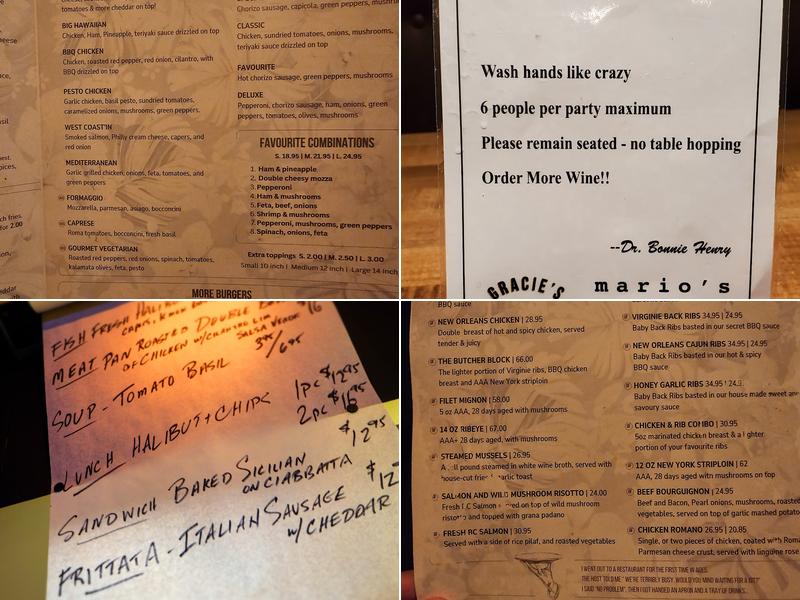 tomatoes & more cheddar on top!
BIG HAWAIIAN
Chicken, Ham, Pineapple, teriyaki sauce drizzled on top
BBQ CHICKEN
Chicken, roasted red pepper, red onion, cilantro, with
BBQ drizzled on top
PESTO CHICKEN
Garlic chicken, basil pesto, sundried tomatoes,
caramelized onions, mushrooms, green peppers.
WEST COAST'IN
Smoked salmon, Philly cream cheese, capers, and
red onion
MEDITERRANEAN
Garlic grilled chicken, onions, feta, tomatoes, and
green peppers
FORMAGGIO
Mozzarella, parmesan, asiago, bocconcini
CAPRESE
Roma tomatoes, bocconcini, fresh basil
GOURMET VEGETARIAN
Roasted red peppers, red onions, spinach, tomatoes,
kalamata olives, feta, pesto
Chorizo sausage, capicola, green peppers,
CLASSIC
Chicken, sundried tomatoes, onions, mushrooms,
teriyaki sauce drizzled on top
FAVOURITE
Hot chorizo sausage, green peppers, mushrooms
DELUXE
Pepperoni, chorizo sausage, ham, onions, green
peppers, tomatoes, olives, mushrooms
FAVOURITE COMBINATIONS
S. 18.95 | M. 21.95 | L. 24.95
1. Ham & pineapple
2. Double cheesy mozza
3. Pepperoni
4. Ham & mushrooms
5. Feta, beef, onions
6. Shrimp & mushrooms
7. Pepperoni, mushrooms, green peppers
8. Spinach, onions, feta
Extra toppings S. 2.00 | M. 2.50 | L. 3.00
Small 10 inch | Medium 12 inch | Large 14 inch
MORE BURGERS
Wash hands like crazy
6 people per party maximum
Please remain seated - no table hopping
Order More Wine!!
--Dr. Bonnie Henry
GRACIE'S mario's
FISH FRESH HALIBUT
MEAT PAN ROASTED DOUBLE
OF CHICKEN W/CILANTRO LIME
SALSA VERDE
SOUP - TOMATO BASIL 3.95/6.95
LUNCH HALIBUT + CHIPS 1pc $12.95
2pc $16.95
SANDWICH BAKED SICILIAN $12.95
ON CIABBATTA
FRITTATA - ITALIAN SAUSAGE $12
W/CHEDDAR
BBQ sauce
NEW ORLEANS CHICKEN | 28.95
Double breast of hot and spicy chicken, served
tender & juicy
THE BUTCHER BLOCK | 66.00
The lighter portion of Virginie ribs, BBQ chicken
breast and AAA New York striploin
FILET MIGNON | 58.00
5 oz AAA, 28 days aged with mushrooms
14 OZ RIBEYE | 67.00
AAA+ 28 days aged, with mushrooms
STEAMED MUSSELS | 26.95
pound steamed in white wine broth, served with
house-cut fries garlic toast
SALMON AND WILD MUSHROOM RISOTTO | 24.00
Fresh Salmon on top of wild mushroom
risotto and topped with grana padano
FRESH BC SALMON | 30.95
Served with a side of rice pilaf, and roasted vegetables
VIRGINIE BACK RIBS 34.95 | 24.95
Baby Back Ribs basted in our secret BBQ sauce
NEW ORLEANS CAJUN RIBS 34.95 | 24.95
Baby Back Ribs basted in our hot & spicy
BBQ sauce
HONEY GARLIC RIBS 34.95
Baby Back Ribs basted in our house made sweet and
savoury sauce
CHICKEN & RIB COMBO | 30.95
5oz marinated chicken breast & a lighter
portion of your favourite ribs
12 OZ NEW YORK STRIPLOIN | 62
AAA, 28 days aged with mushrooms on top
BEEF BOURGUIGNON | 24.95
Beef and Bacon, Pearl onions, mushrooms, roasted
vegetables, served on top of garlic mashed
CHICKEN ROMANO 26.95 | 20.85
Single, or two pieces of chicken, coated with Romano
Parmesan cheese crust, served with linguine
I WENT OUT TO A RESTAURANT FOR THE FIRST TIME IN AGES.
THE HOST TOLD ME " WE'RE TERRIBLY BUSY, WOULD YOU MIND WAITING FOR A BIT?"
I SAID "NO PROBLEM", THEN I GOT HANDED AN APRON AND A TRAY OF DRINKS...